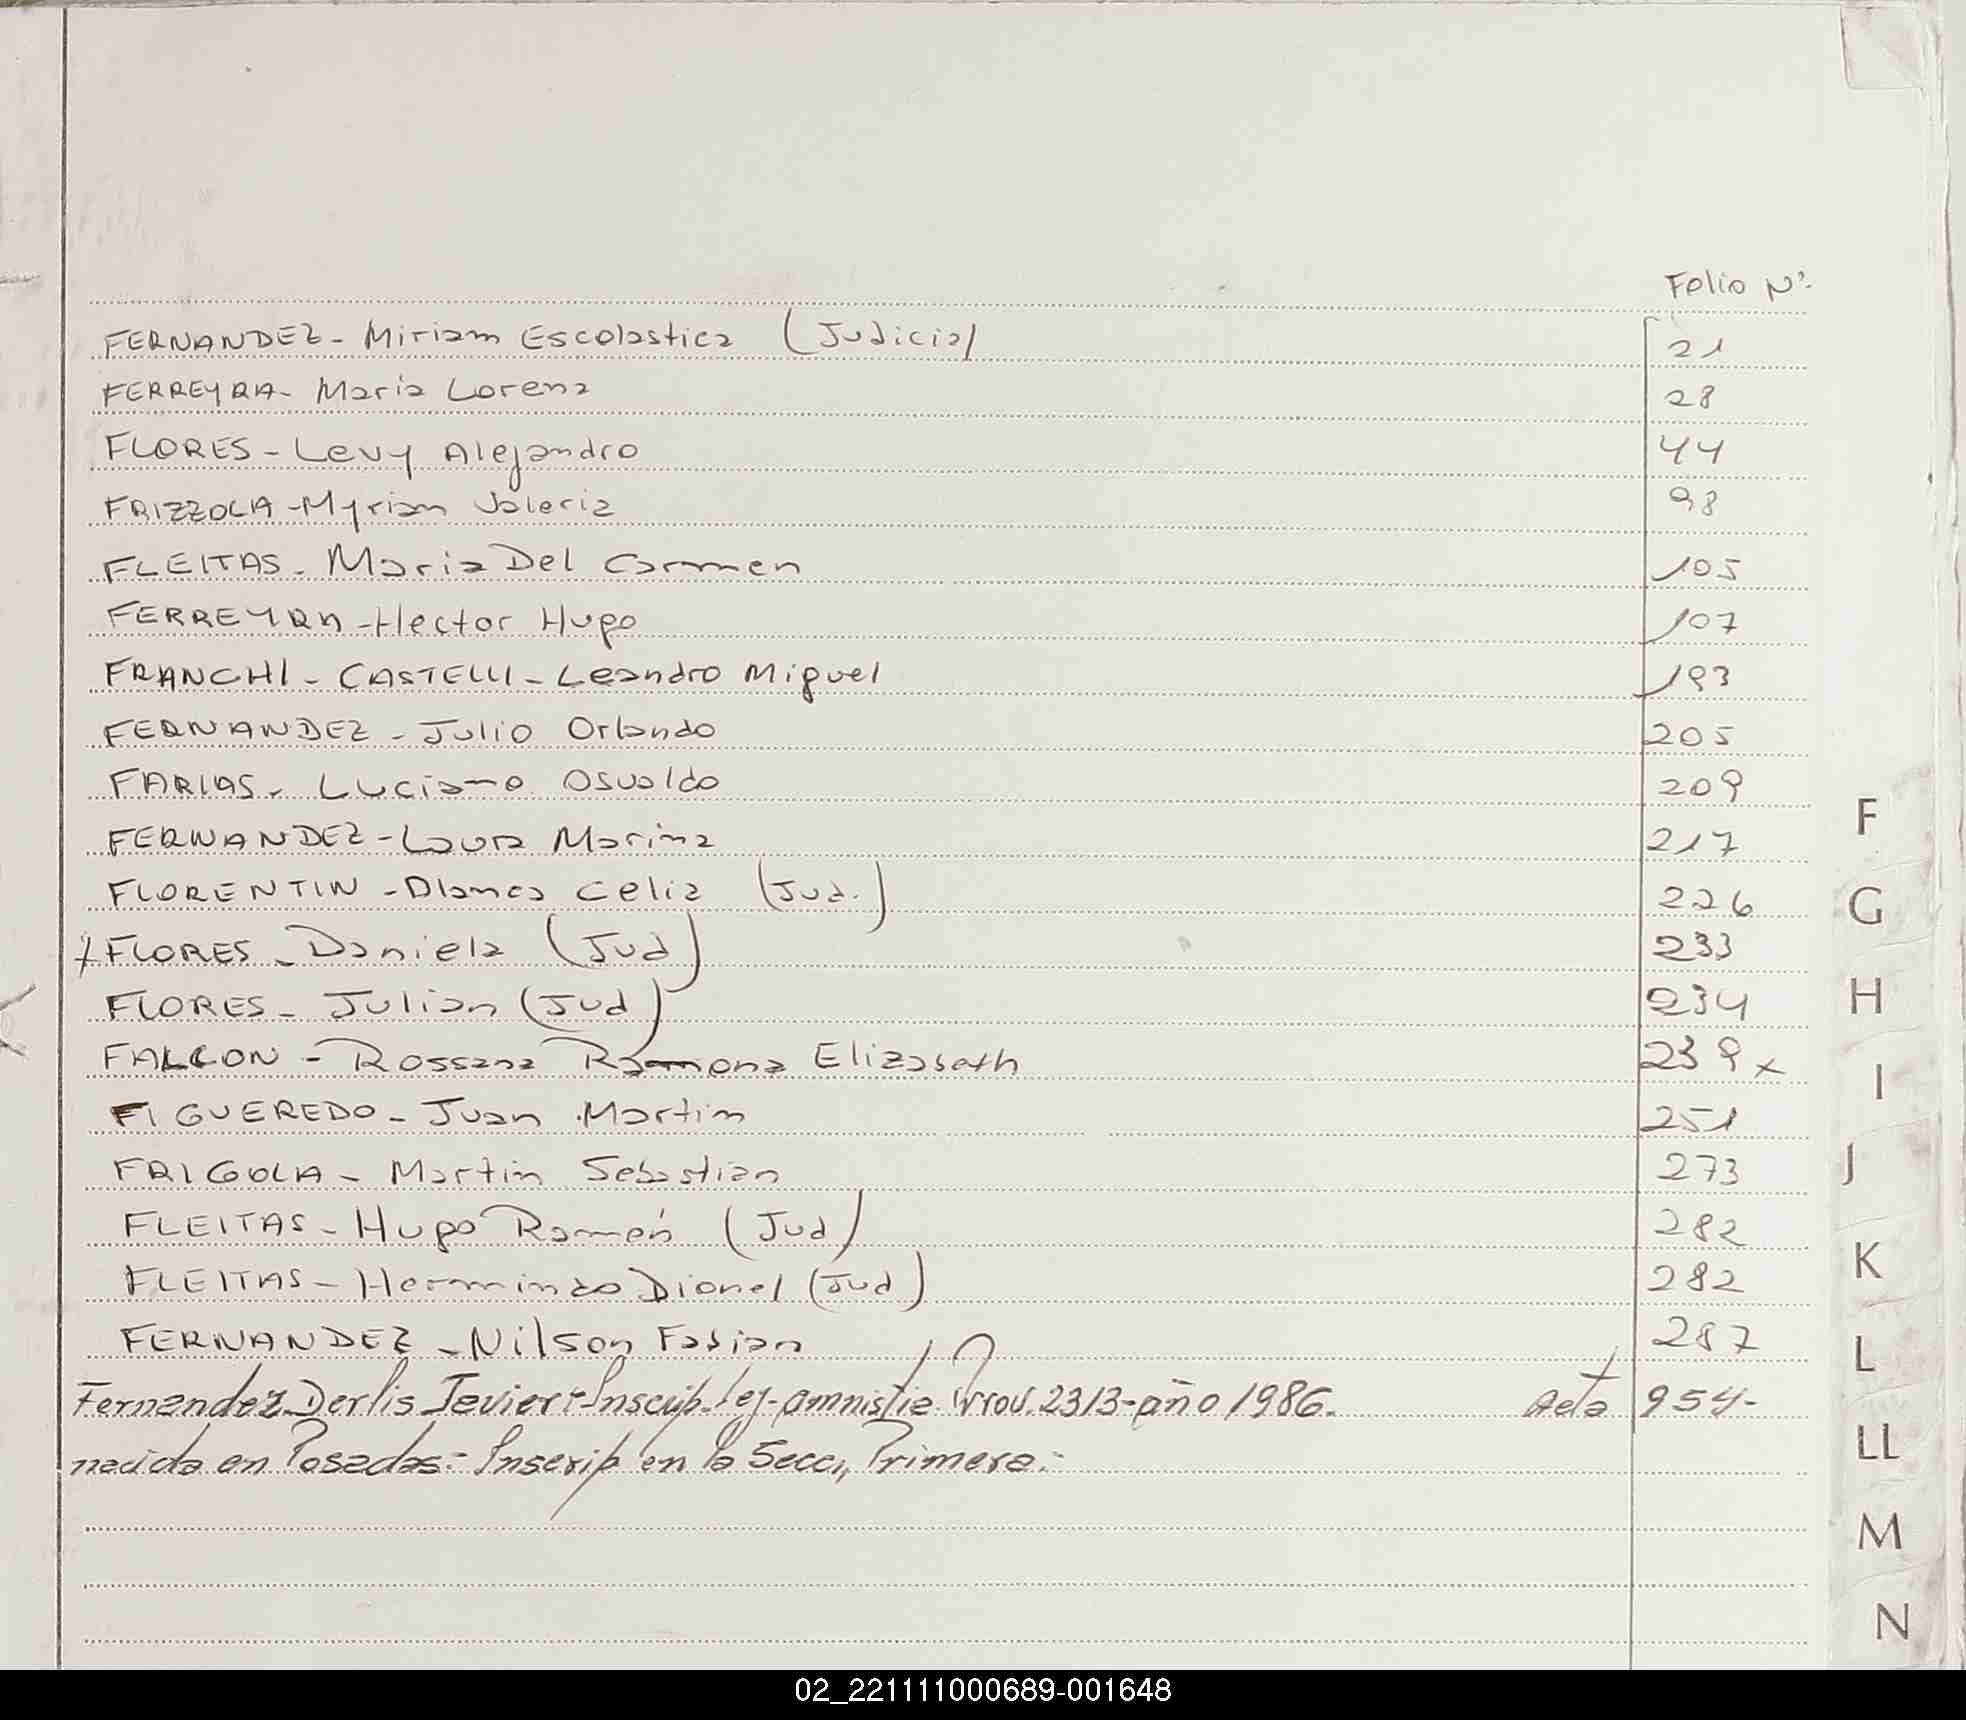 Folio Nº
FERNANDEZ - Miriam Escolastica (Judicial 21
FERREYRA - Maria Lorena 28
FLORES - Levy Alejandro 44
FRIZZOLA - Myrian Valeria 98
FLEITAS - Maria Del Carmen 105
FERREYRA - Hector Hugo 107
FRANCHI - CASTELLI - Leandro Miguel 193
FERNANDEZ - Julio Orlando 205
FARIAS - Luciano Osvaldo 209
FERNANDEZ - Laura Marina 217
FLORENTIN - Blanca Celia (Jud.) 226
FLORES - Daniela (Jud) 233
FLORES - Julian (Jud) 234
FALCON - Rossana Ramona Elizabeth 239 x
FIGUEREDO - Juan Martin 251
FRIGOLA - Martin Sebastian 273
FLEITAS - Hugo Ramón (Jud) 282
FLEITAS - Dionel (Jud) 282
FERNANDEZ - Nilson Fabian 287
Fernandez Derlis Javier: Inscrip. ley - amnistia Prov. 2313 - año 1986. Acta 954-
nacido en Posadas: Inscrip en la Secc, Primera:
F
G
H
I
J
K
L
LL
M
N
02_221111000689-001648